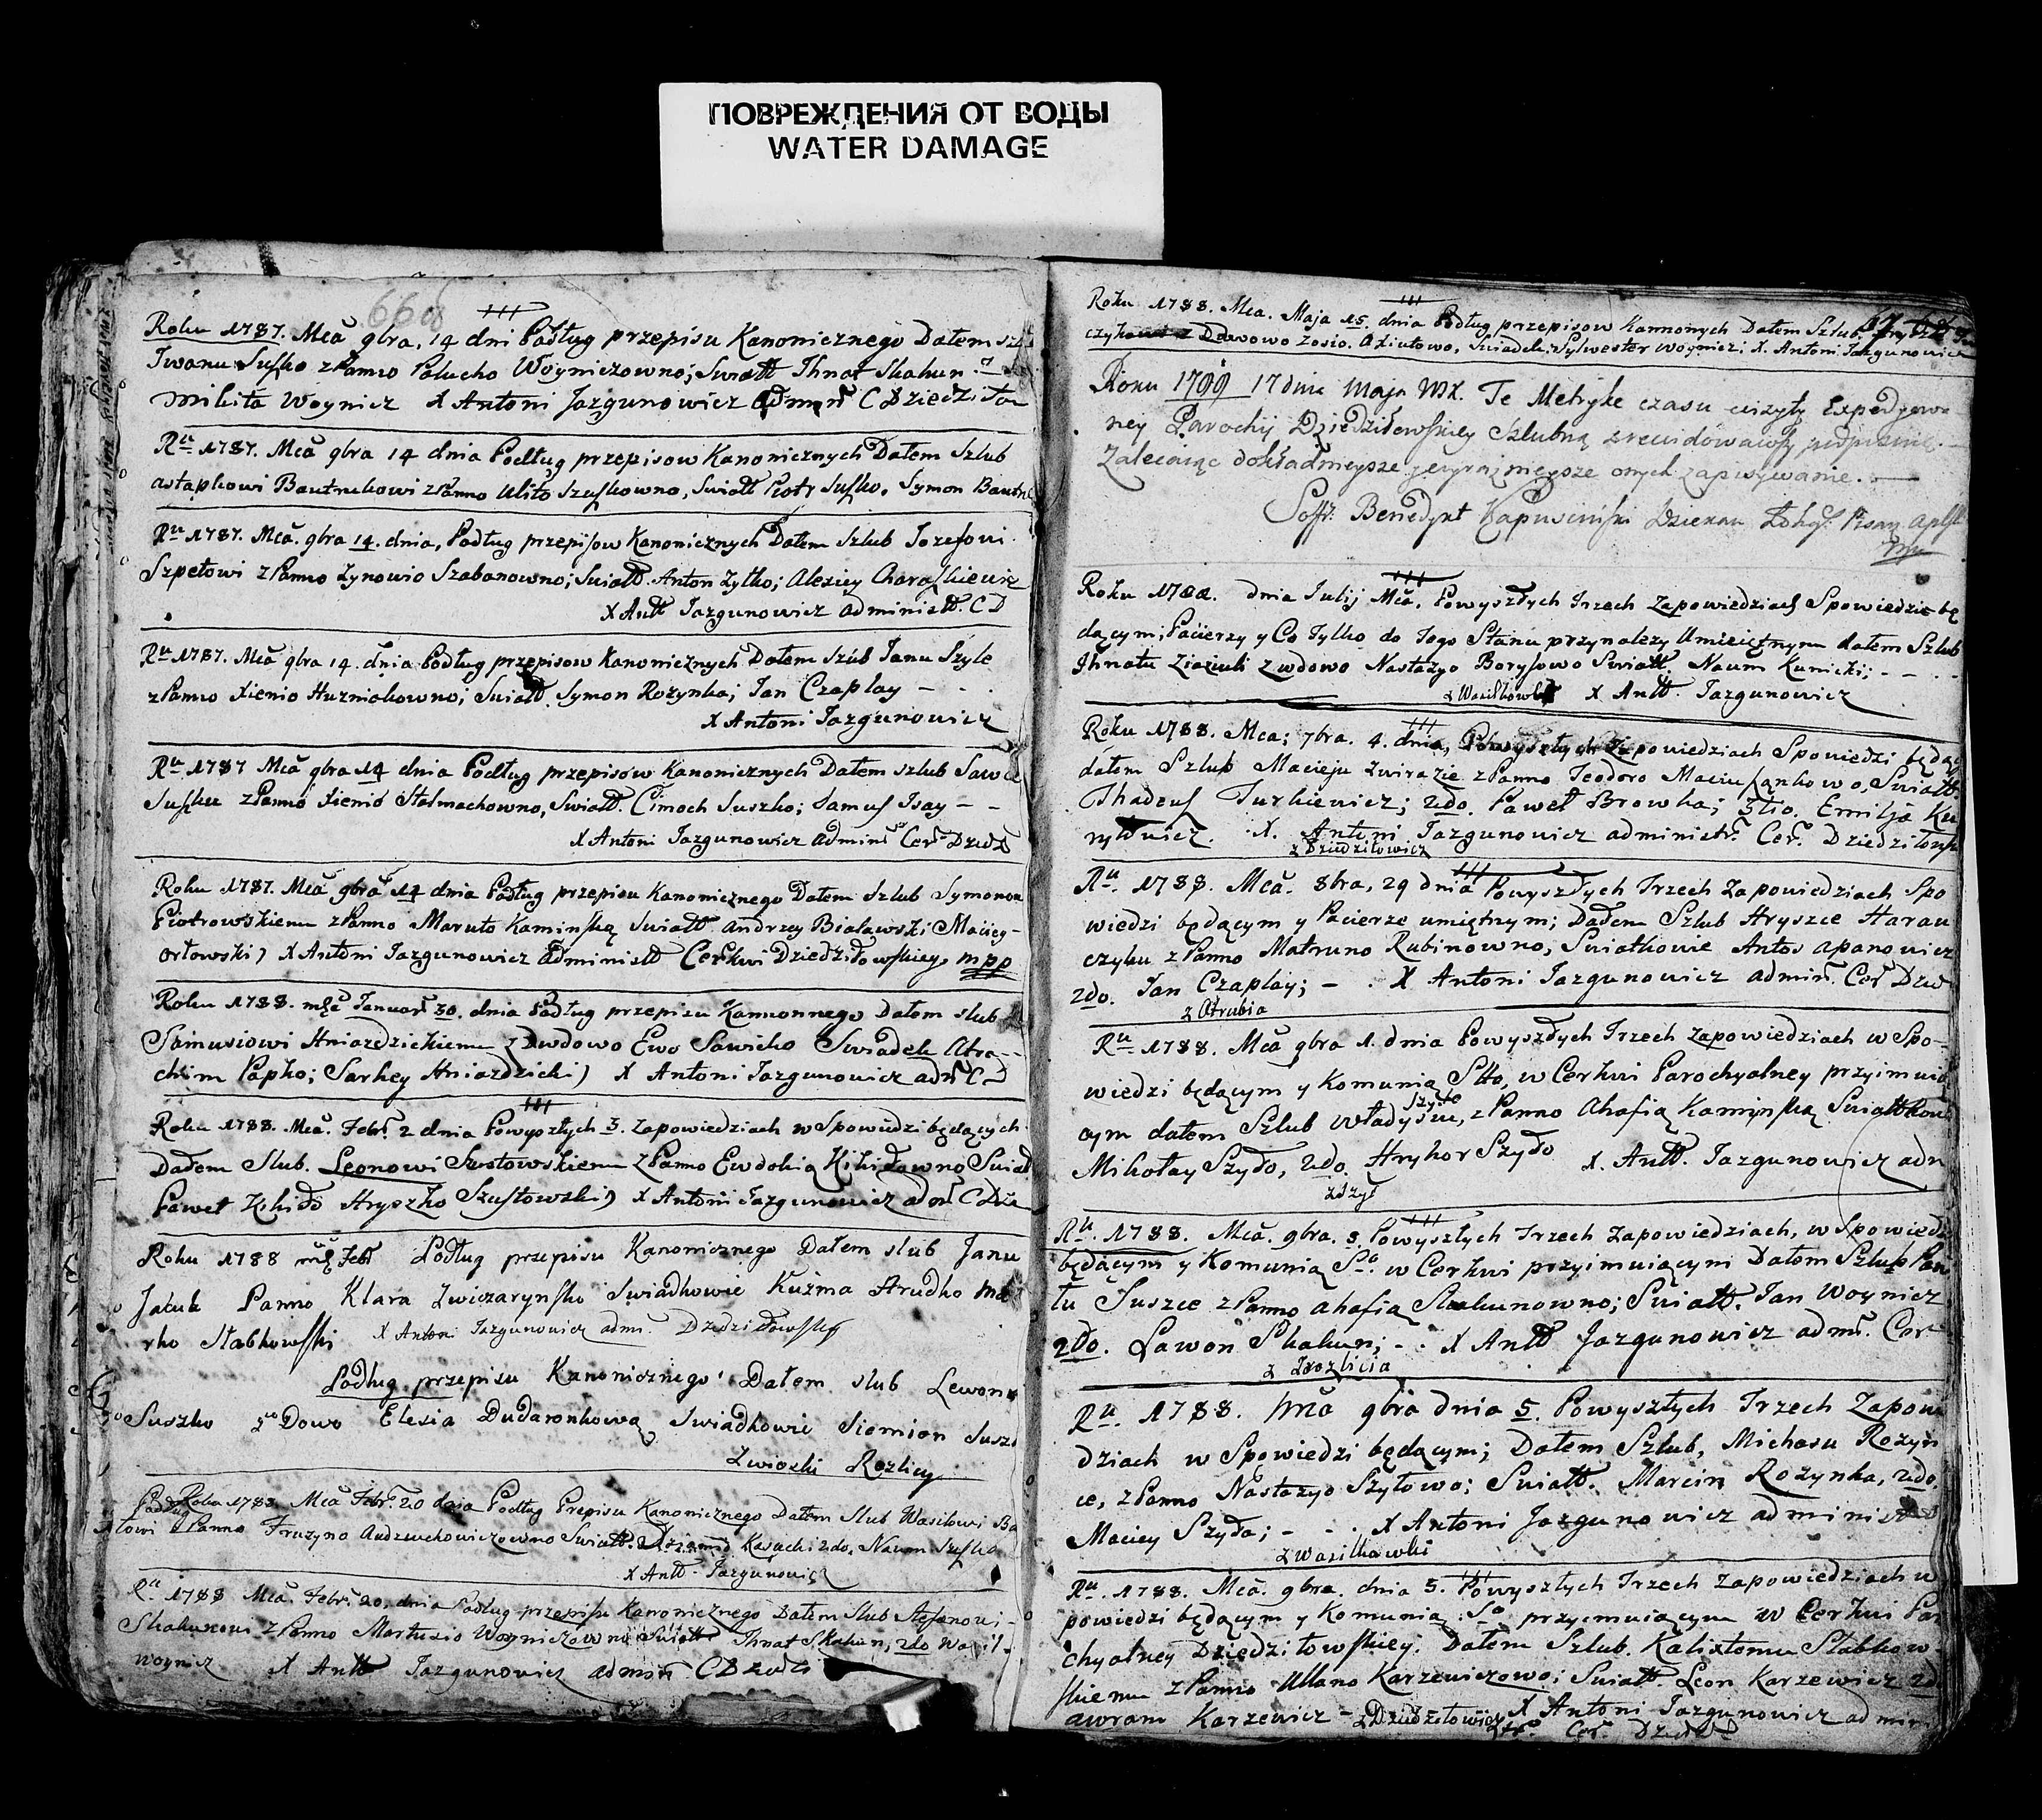 ПОВРЕЖДЕНИЯ ОТ ВОДЫ
WATER DAMAGE
Roku 1787. Mcă 9bra, 14 dni Podług przepisu Kanonicznego Dałem
Iwanu Suszko z Panno Połucho Woyniczowno; Swiatt Ihnat Skakun
Mikita Woynicz X Antoni Jazgunowicz
Ru 1787. Mcă 9bra 14 dnia Podług przepisow Kanonicznych Dałem Szlub
Astapkowi z Panno Ulito Szuszkowno, Swiatt Piotr Suszko, Symon
Ru 1787. Mcă. 9bra 14. dnia, Podług przepisow Kanonicznych Dałem Szlub Jozefowi
Szpetowi z Panno Zynowio Szabanowno; Swiatt. Anton Zytko; Alexiey
X Antt Jazgunowicz administt. C D
Ru 1787. Mcă 9bra 14. dnia Podług przepisow Kanonicznych Dałem Szlub Janu Szyle
z Panno Xienio Huzniakowno; Swiatt. Symon Rozynka; Jan Czapłay
X Antoni Jazgunowicz
Ru 1787 Mcă 9bra 14 dnia Podług przepisow Kanonicznych Dałem szlub Sawa
Suszku z Panno Xienio Stalmachowno, Swiatt. Cimoch Suszko; Samus Isay
X Antoni Jazgunowicz Admin Cer Dzied
Roku 1787. Mcă 9bra 14 dnia Podług przepisu Kanonicznego Dałem Szlub Symonou
Piotrowskiemu z Panno Maruto Kaminską Swiatt Andrzey Białawski Maciey
Orłowski) X Antoni Jazgunowicz Administt Cerkwi Dziedziłowskiey mpp
Roku 1788. Januar 30. dnia Podług przepisu Dałem slub
Samusiowi Hniazdzickiemu z Wdowo Ewo Sawicko Swiadek Abra
chim Papko; Sarhey Hniazdzicki) X Antoni Jazgunowicz adm C D
Roku 1788. Mcă. Febr. 2 dnia Powyszłych 3. Zapowiedziach w Spowiedzi będących
Dałem Slub. Leonowi Szustowskiemu z Panno Ewdokią Kikiłowno Swiat
Paweł Kikiło Hryszko Szustowski) X Antoni Jazgunowicz adm C Dzie
Roku 1788 Febr Podług przepisu Kanonicznego Dałem slub Janu
Jakub Panno Klara Swiadkowie Kuźma Hrudko Ma
rko Słabkowski X Antoni Jazgunowicz adm. Dziedziłowskey
Podług przepisu Kanonicznego Dałem slub Lewonu
Suszko Elesia Dudaronkową Swiadkowie Siemion Susz
Zwioski Rozlicy
Roku 1788 Mcă Febr. 20 dnia Podług Prepisu Kanonicznego Dałem Slub Wasilowi
z Panno Fruzyno Audzuchowiczowno Swiatt. Kasach: 2do. Naum Suszko
X Antt. Jazgunowicz
Ru 1788 Mcă. Febr. 20. dnia Podług przepisu Kanonicznego Dałem Slub Stefanowi
Skakunowi z Panno Martusio Woyniczowno Swiatt Ihnat Skakun, 2do Wasil
Woynicz X Antt Jazgunowicz admin C Dziedz
Roku 1788. Mca. Maja 15. dnia Podług przepisow Kannonych Dałem Szlub.
Zosio. Swiadek: Sylwester Woynicz: X. Antoni Jazgunowicz
Roku 1799 17 dnia Maja Te Metryke czasu wizyty
ney Parochij Dziedziłowskiey Szlubną zrewidowawszy podpisuię.
Zalecaiąc dokładnieysze y wyraznieysze onych zapisywanie.
Benedykt Kapuscinski Dziekan
Roku 1788. dnia Julij Mcă. Powyszłych Trzech Zapowiedziach Spowiedzi bę
dącym; Pacierzy y Co Tylko do Tego Stanu przynalezy Umieiętnym dałem Szlub
Ihnatu z wdowo Nastazyo Borysowo Swiatt. Naum Kunicki;
z Wasilkowki X Antt. Jazgunowicz
Roku 1788. Mca; 7bra. 4. dnia, Powyszłych Zapowiedziach Spowiedzi będąc
dałem Szlub Macieju z Panno Teodoro Swiatt.
Thadeus Jurkiewicz; 2do. Paweł Browka; 3tio. Emilja Ku
ryłowicz. X. Antoni Jazgunowicz administr. Cer. Dziedziłows
z Dziedziłowicz
Ru. 1788. Mcă. 8bra, 29 dnia Powyszłych Trzech Zapowiedziach Spo
wiedzi będącym y Pacierze umiętnym; Dałem Szlub Hryszce Harau
czyku z Panno Matruno Rubinowno, Swiatkowie Antos Apanowicz
2do. Jan Czapłay; X Antoni Jazgunowicz admin. Cer Dzied
z Otrubia
Ru 1788. Mcă 9bra 1. dnia Powyszłych Trzech Zapowiedziach w Spo-
wiedzi będącym y Komunią Stto, w Cerkwi Parochyalney przyimuią
cym dałem Szlub Władysiu, Szyle z Panno Ahafią Kaminską Swiattkow
Mikołay Szyło, 2do. Hryhor Szyło X. Antt. Jazgunowicz adm
Ru. 1788. Mcă. 9bra. 3 Powyszłych Trzech Zapowiedziach, w Spowiedzi
będącym y Komunią Sto. w Cerkwi przyimuiącymi Dałem Szlub Pau
lu Suszce z Panno Ahafią Skakunowno; Swiatt. Jan Woynicz
2do. Lawon Skakun; X Antt Jazgunowicz adm. Cer
z Zrozlicia
Ru. 1788. Mcă 9bra dnia 5. Powyszłych Trzech Zapowie
dziach w Spowiedzi będącym; Dałem Szlub, Michasu Rozyn
ce, z Panno Nastazyo Szyłowo; Swiatt. Marcin Rozynka, 2do.
Maciey Szyło; X Antoni Jazgunowicz administ
z Wasilkowki
Ru. 1788. Mcă. 9bra. dnia 5. Powyszłych Trzech Zapowiedziach w
powiedzi będącym y Komunią So przyimuiącym w Cerkwi Par
chyalney Dziedziłowskiey. Dałem Szlub. Kalixtemu Słabkow
skiemu z Panno Ullano Karzewiczowo; Swiatt. Leon Karzewicz 2do
Awram Karzewicz z Dziedziłowicz X Antoni Jazgunowicz admini
Cer. Dzied